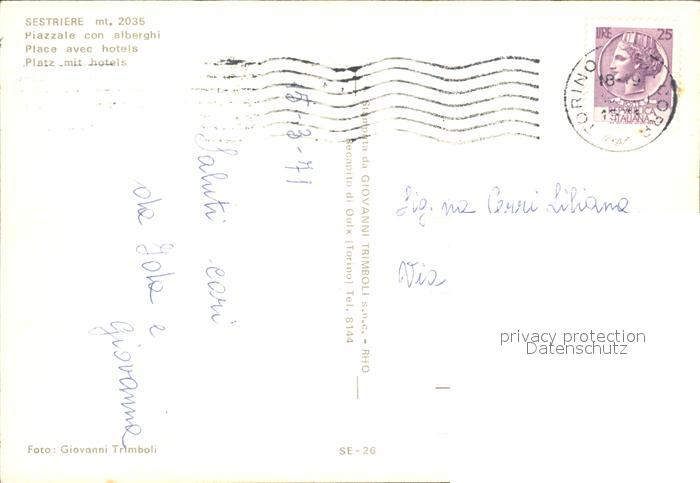 SESTRIERE mt. 2035
Piazzale con alberghi
Place avec hotels
Platz mit hotels
LIRE 25
REPVBBLICA
ITALIANA
TORINO
18-19
15-3-71
Saluti cari
da Iola e
Giovanna
Stampata da GIOVANNI TRIMBOLI s.n.c. - RHO
Recapito di Oulx (Torino) Tel. 8144
Sig.na Cerri Liliana
Via
privacy protection
Datenschutz
Foto: Giovanni Trimboli
SE-26